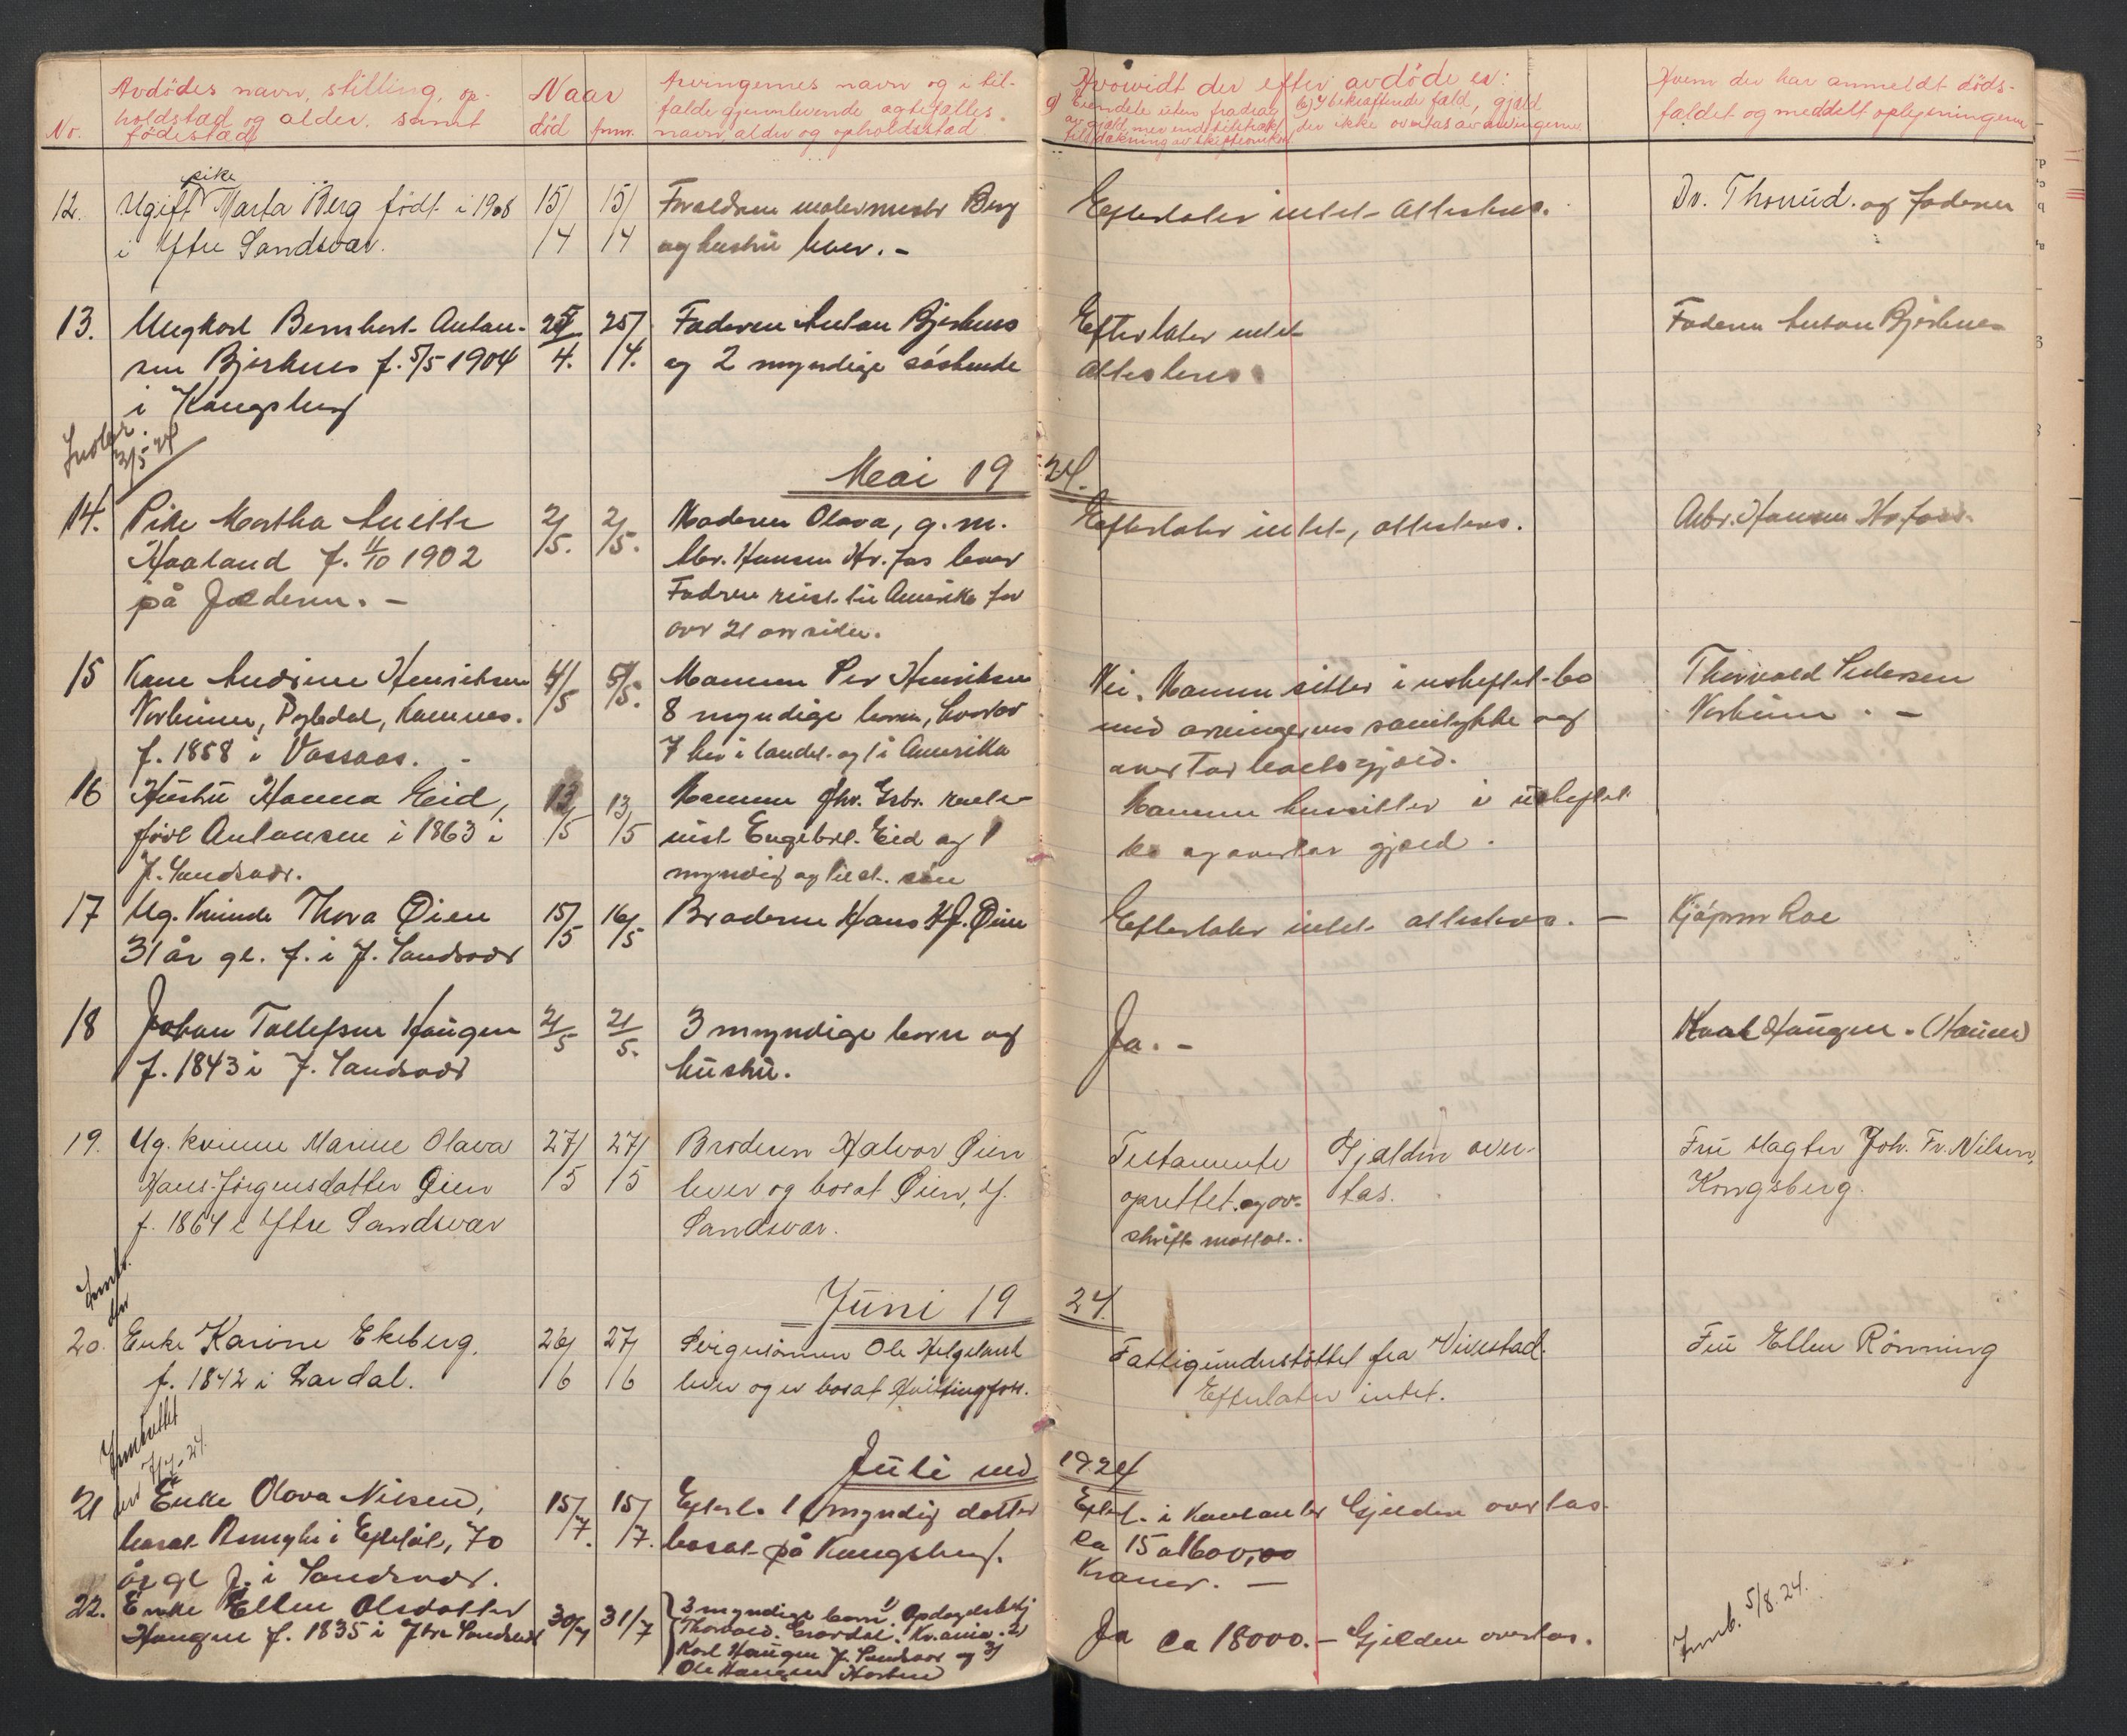 No.
Avdödes navn, stilling, op-
holdsstad og alder, samt
födestad
Naar
död
anm.
Arvingernes navn og i til-
fælde gjenlevende ægtefælles
navn, alder og opholdsstad.
Hvorvidt der efter avdöde er:
a) Eiendele uten fradrag
av gjæld, mer end tilstrækk.
til dækning av skifteomk.
b) I bekræftende fald, gjæld
der ikke overtas av arvingerne
Hvem der har anmeldt döds-
faldet og meddelt oplysningerne
12.
pike
Ugift Marta Berg födt i 1908
i Ytre Sandsvær.
15/4
15/4
Forældrene malermester Berg
og hustru lever. -
Efterlater intet. Attesteres.
Dr. Thorrud. og faderen
13.
Ungkarl Bernhart Antan-
sen Bjerknes f. 5/5 1904
i Kongsberg
25/4.
25/4.
Faderen Antan Bjerknes
og 2 myndige söskende
Efterlater intet
Attesteres
Faderen Antan Bjerknes
Indber.
2/5-24
Mai 1924.
14.
Pike Martha Anette
Haaland f. 11/10 1902
på Jæderen. -
2/5.
2/5.
Moderen Olava, g. m.
Arb. Hansen Hv.fos lever
Faderen reist til Amerika for
over 21 aar siden.
Efterlater intet, attesteres.
Arb. Hansen Hv.foss.
15
Kone Andrine Henriksen
Norheim, Komnes.
f. 1858 i Vassaas. -
4/5
5/5.
Manden Per Henriksen
8 myndige barn, hvorav
7 her i landet og 1 i Amerika
Nei. Manden sitter i uskiftet bo
med arvingernes samtykke og
overtar boets gjæld.
Thorvald Pedersen
Norheim. -
16
Hustru Hanna Eid,
född Antansen i 1863 i
Y. Sandsvær.
13/5
13/5
Manden fhv.
Engebret Eid og 1
myndig sön
Manden hensitter i uskiftet
bo og overtar gjæld.
17
Ug. Kvinde Thora Øien
31 år gl. f. i Y. Sandsvær
15/5
16/5
Broderen Hans H. Øien
Efterlater intet attesteres. -
Kjöpm Roe
18
Johan Tollefsen Haugen
f. 1843 i Y. Sandsvær
21/5
21/5.
3 myndige barn og
hustru.
Ja. -
Karl Haugen.
19.
Ug. kvinne Marine Olava
Hans-Jörgensdatter Øien
f. 1864 i Ytre Sandsvær
27/5
27/5
Broderen Halvor Øien
lever og bosat Øien, Y.
Sandsvær.
Testamente
oprettet. og av-
skrift mottat.
Gjælden over-
tas.
Fru Joh. Fr. Nilsen,
Kongsberg.
Juni 1924.
20.
Enke Karine Ekeberg.
f. 1842 i Lardal.
26/6
27/6
Svigersönnen Ole Helgeland
lever og er bosat Hvittingfoss.
Fattigunderstöttet fra Vivestad.
Efterlater intet.
Fru Ellen Rönning
Innberettet
den 7/7-24.
Juli md 1924
21
Enke Olava Nilsen,
bosat i Efteløt, 70
år gl f. i Sandsvær.
15/7.
15/7.
Efterl. 1 myndig datter
bosat på Kongsberg.
Efterl. i kontanter
ca 15 a 1600,00
Kroner. -
Gjælden overtas.
22.
Enke Ellen Olsdatter
Haugen f. 1835 i Ytre Sandsvær
30/7
31/7
3 myndige barn 1)
Thorvald Kr.ania. 2)
Karl Haugen Y. Sandsvær og 3)
Ole Haugen Horten
Ja ca 18000. - Gjælden overtas.
Innb. 5/8. 24.